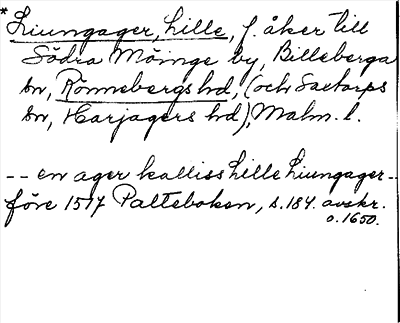 * Liungager, Lille, f. åker till
Södra Möinge by, Billeberga
sn, Rönnebergs hd, (och Saxtorps
sn, Harjagers hd), Malm. l.
-- en ager kalliss Lille Liungager --
före 1517 Palteboken, s. 184. avskr.
o. 1650.